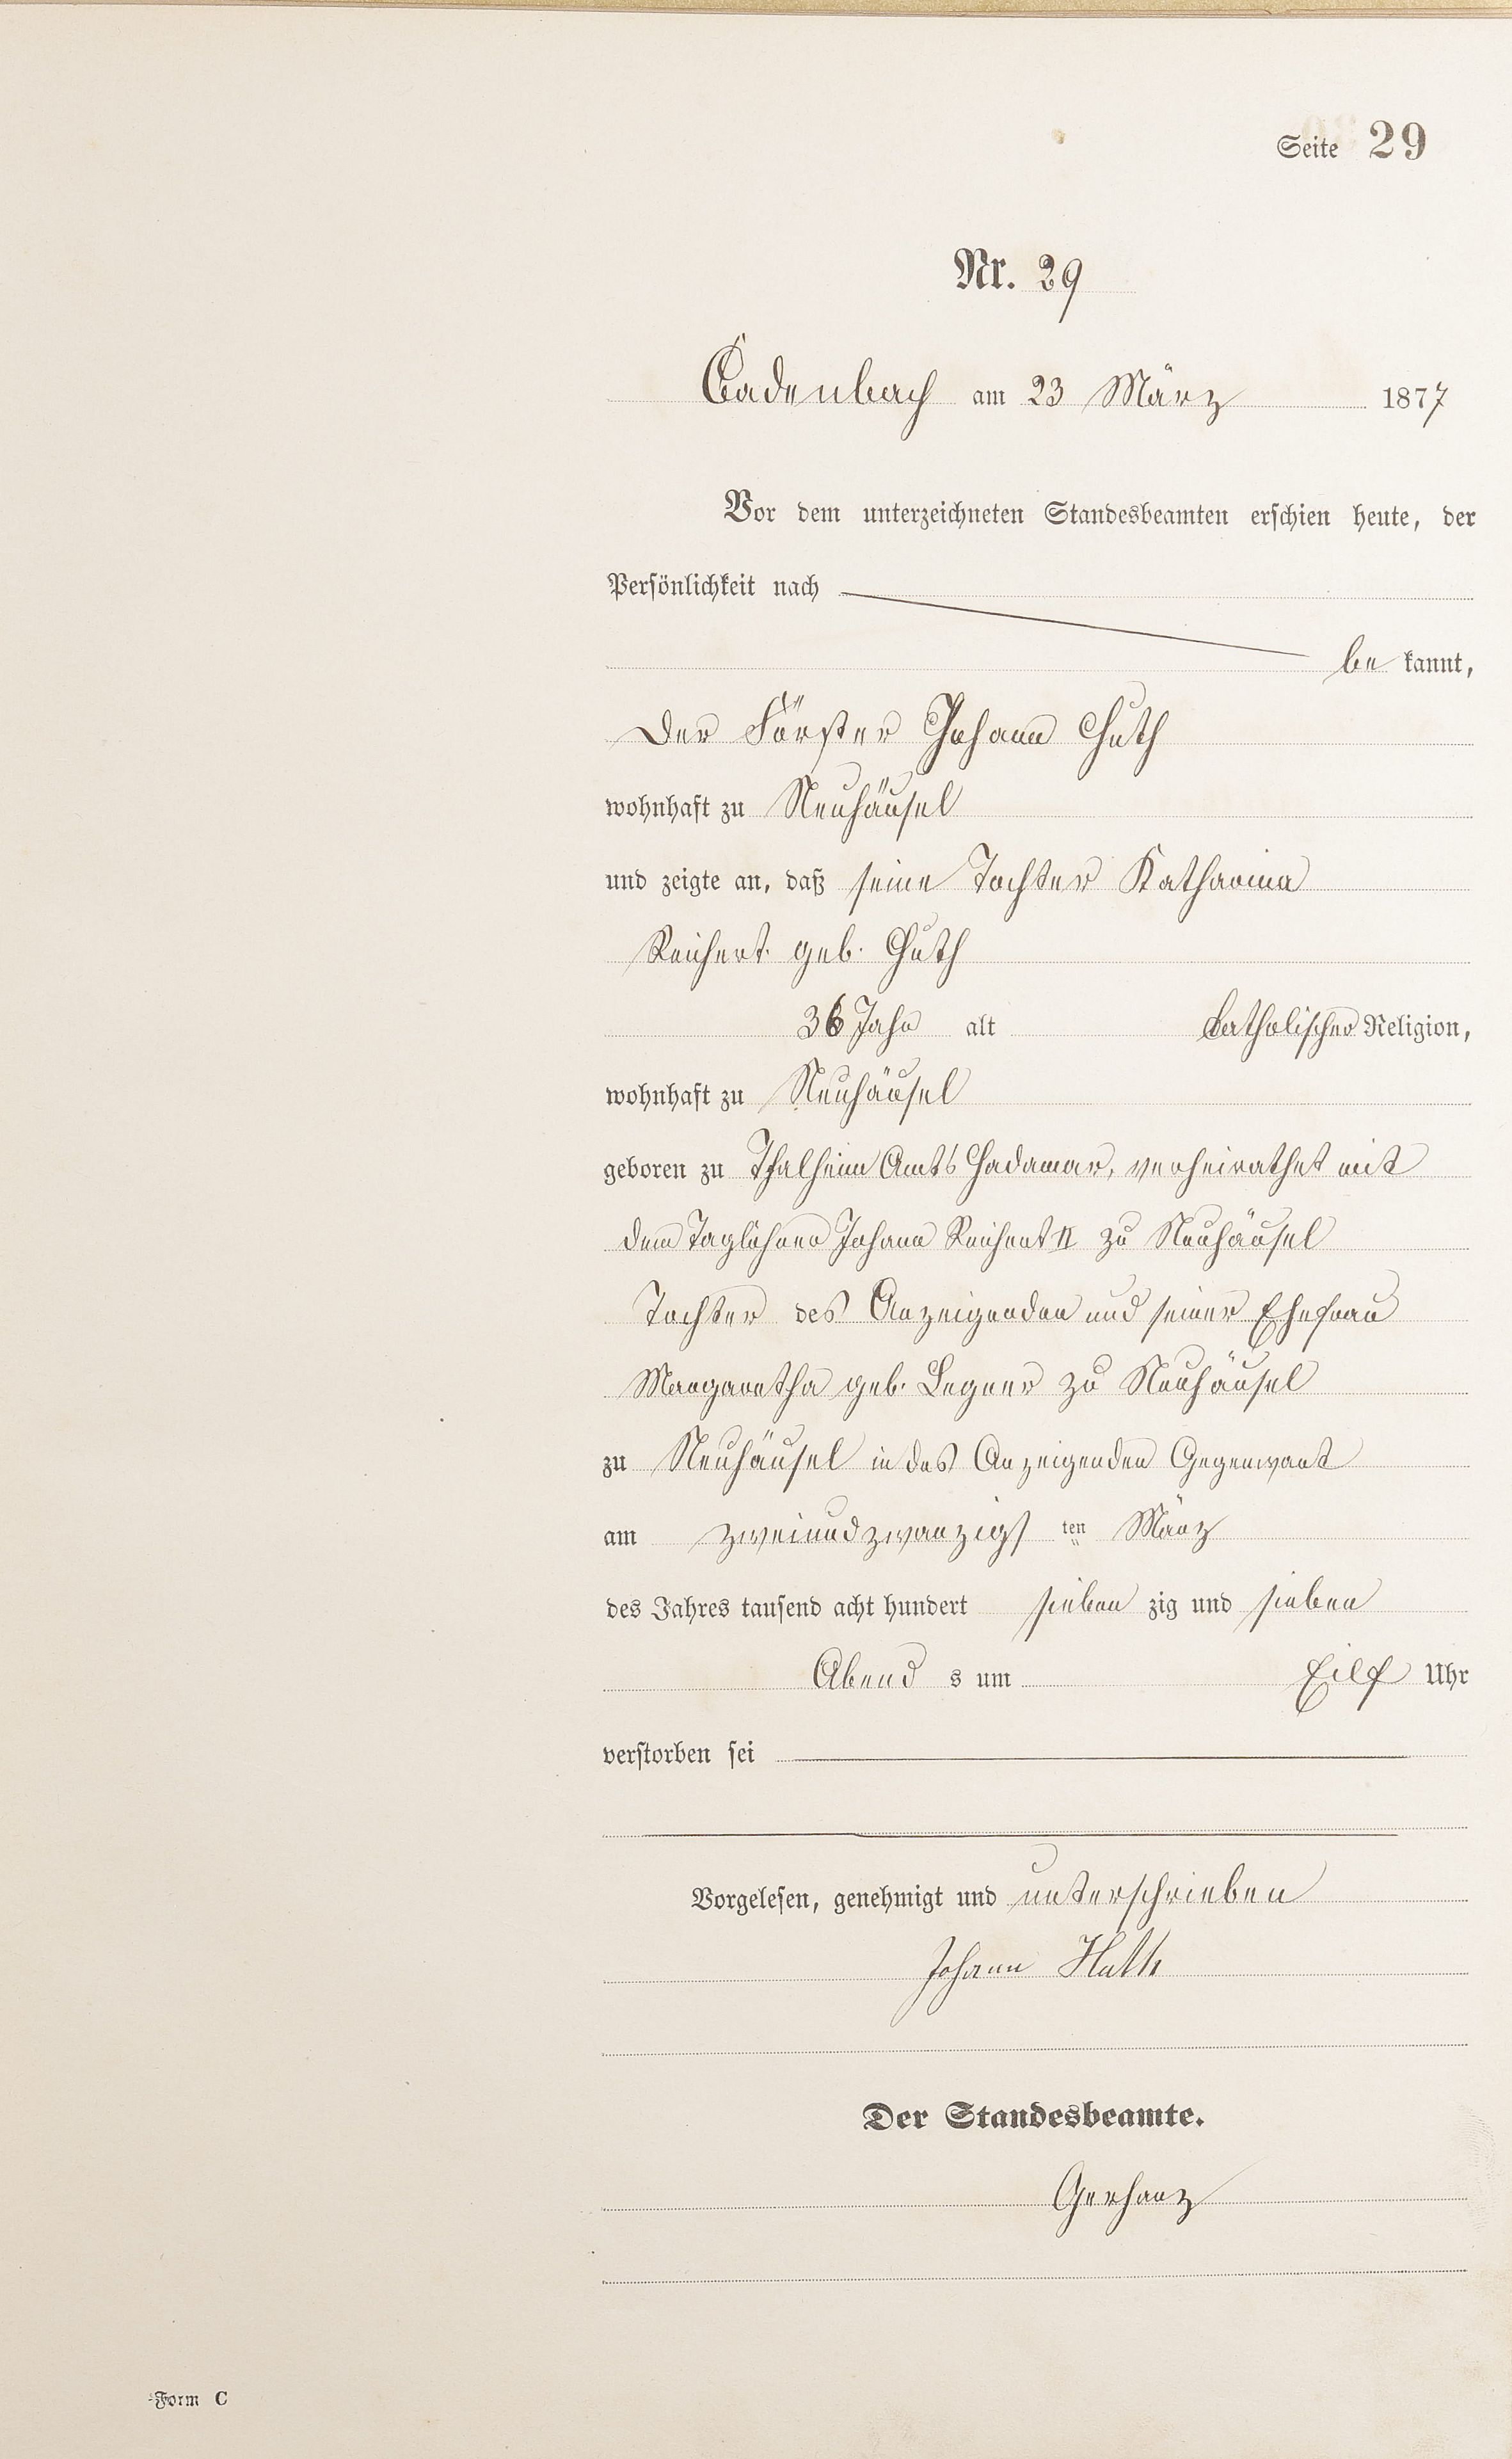 Seite 29
Nr. 29
Cadenbach am 23 März 1877
Vor dem unterzeichneten Standesbeamten erschien heute, der
Persönlichkeit nach
be kannt,
Der Förster Johann Huth
wohnhaft zu Neuhäusel
und zeigte an, daß seine Tochter Katharina
Reichert geb. Huth
36 Jahr alt katholischer Religion,
wohnhaft zu Neuhäusel
geboren zu Thalheim Amts Hadamar, verheirathet mit
dem Taglöhner Johann Reichert II zu Neuhäusel
Tochter des Anzeigenden und seiner Ehefrau
Margaretha geb. Legner zu Neuhäusel
zu Neuhäusel in des Anzeigenden Gegenwart
am zweiundzwanzigs ten März
des Jahres tausend acht hundert sieben zig und sieben
Abend s um Eilf Uhr
verstorben sei
Vorgelesen, genehmigt und unterschrieben
Johann Huth
Der Standesbeamte.
Gerhanz
Form C